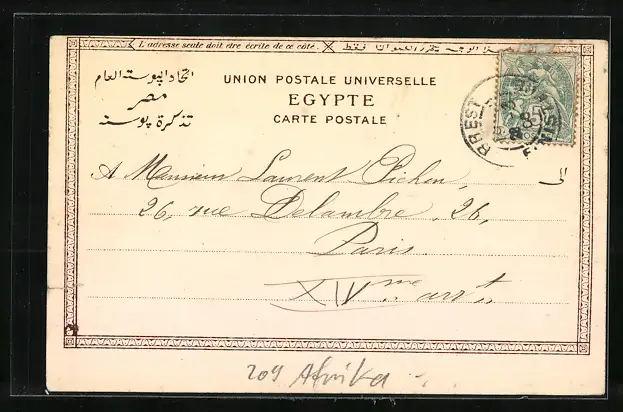 L'adresse seule doit être écrite de ce côté.
اتحاد البوستة العام
مصر
تذكرة بوستة
UNION POSTALE UNIVERSELLE
EGYPTE
CARTE POSTALE
BREST
FINISTERE
5
A Monsieur Laurent Pichon,
26, rue Delambre, 26,
Paris.
XIVme arrt
209 Afrika